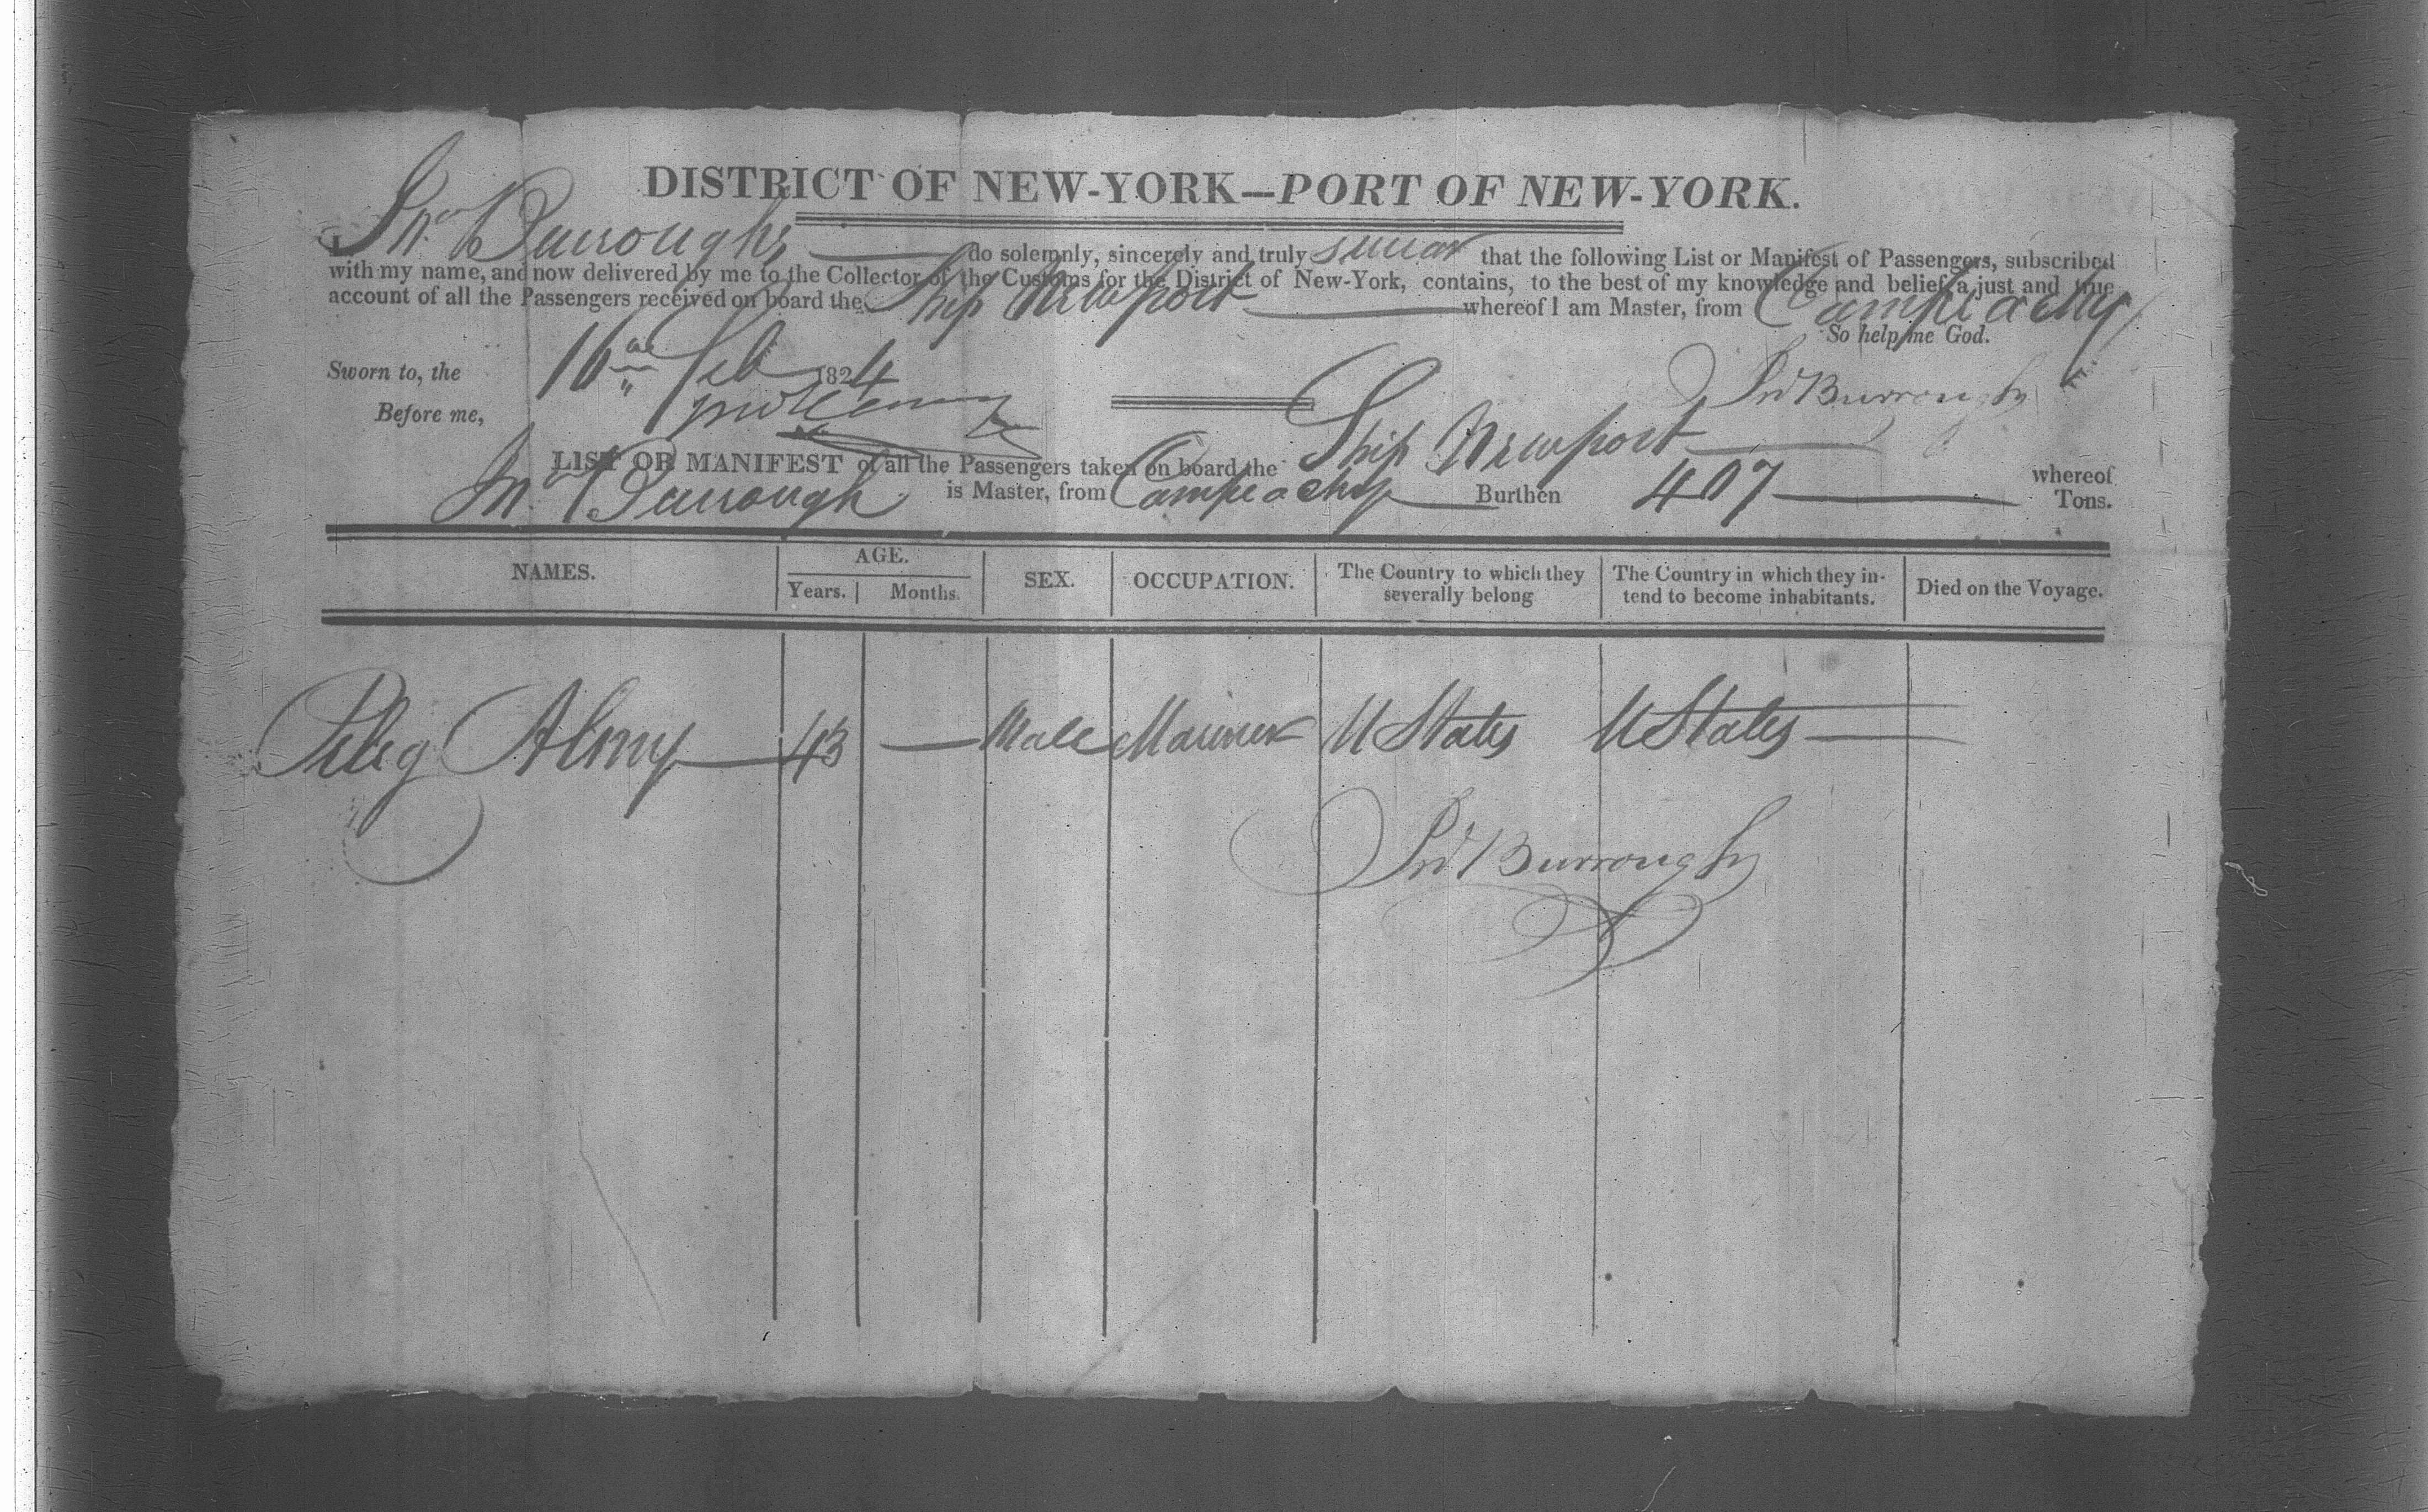 DISTRICT OF NEW-YORK—PORT OF NEW-YORK.
I, Jno. Burroughs do solemnly, sincerely and truly swear that the following List or Manifest of Passengers, subscribed
with my name, and now delivered by me to the Collector of the Customs for the District of New-York, contains, to the best of my knowledge and belief, a just and true
account of all the Passengers received on board the Ship Newport whereof I am Master, from Campeachy
So help me God.
Sworn to, the 16 Feb 1824
Jno Burrough
Before me,
LIST OR MANIFEST of all the Passengers taken on board the Ship Newport whereof
Jno. Burrough is Master, from Campeachy Burthen 407 Tons.
NAMES. AGE. Years. Months. SEX. OCCUPATION. The Country to which they severally belong The Country in which they intend to become inhabitants. Died on the Voyage.
Peleg Almy 43 — Male Mariner U States U States
Jno Burrough